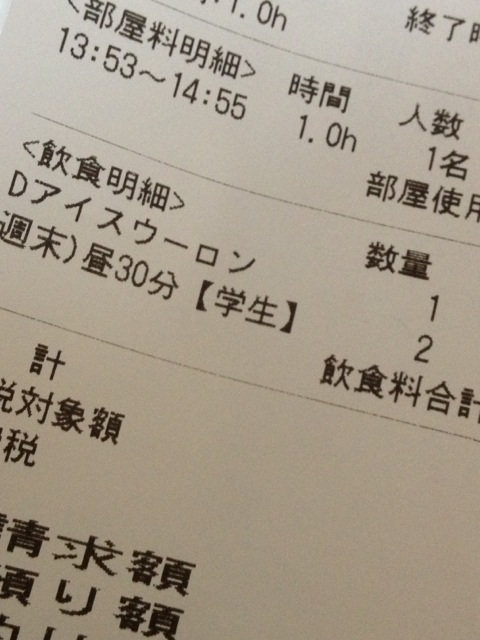 1.0h 終了時
<部屋料明細> 時間 人数
13:53~14:55 1.0h 1名
部屋使用
<飲食明細> 数量
Dアイスウーロン 1
週末)昼30分【学生】 2
飲食料合計
計
税対象額
税
請求額
預り額